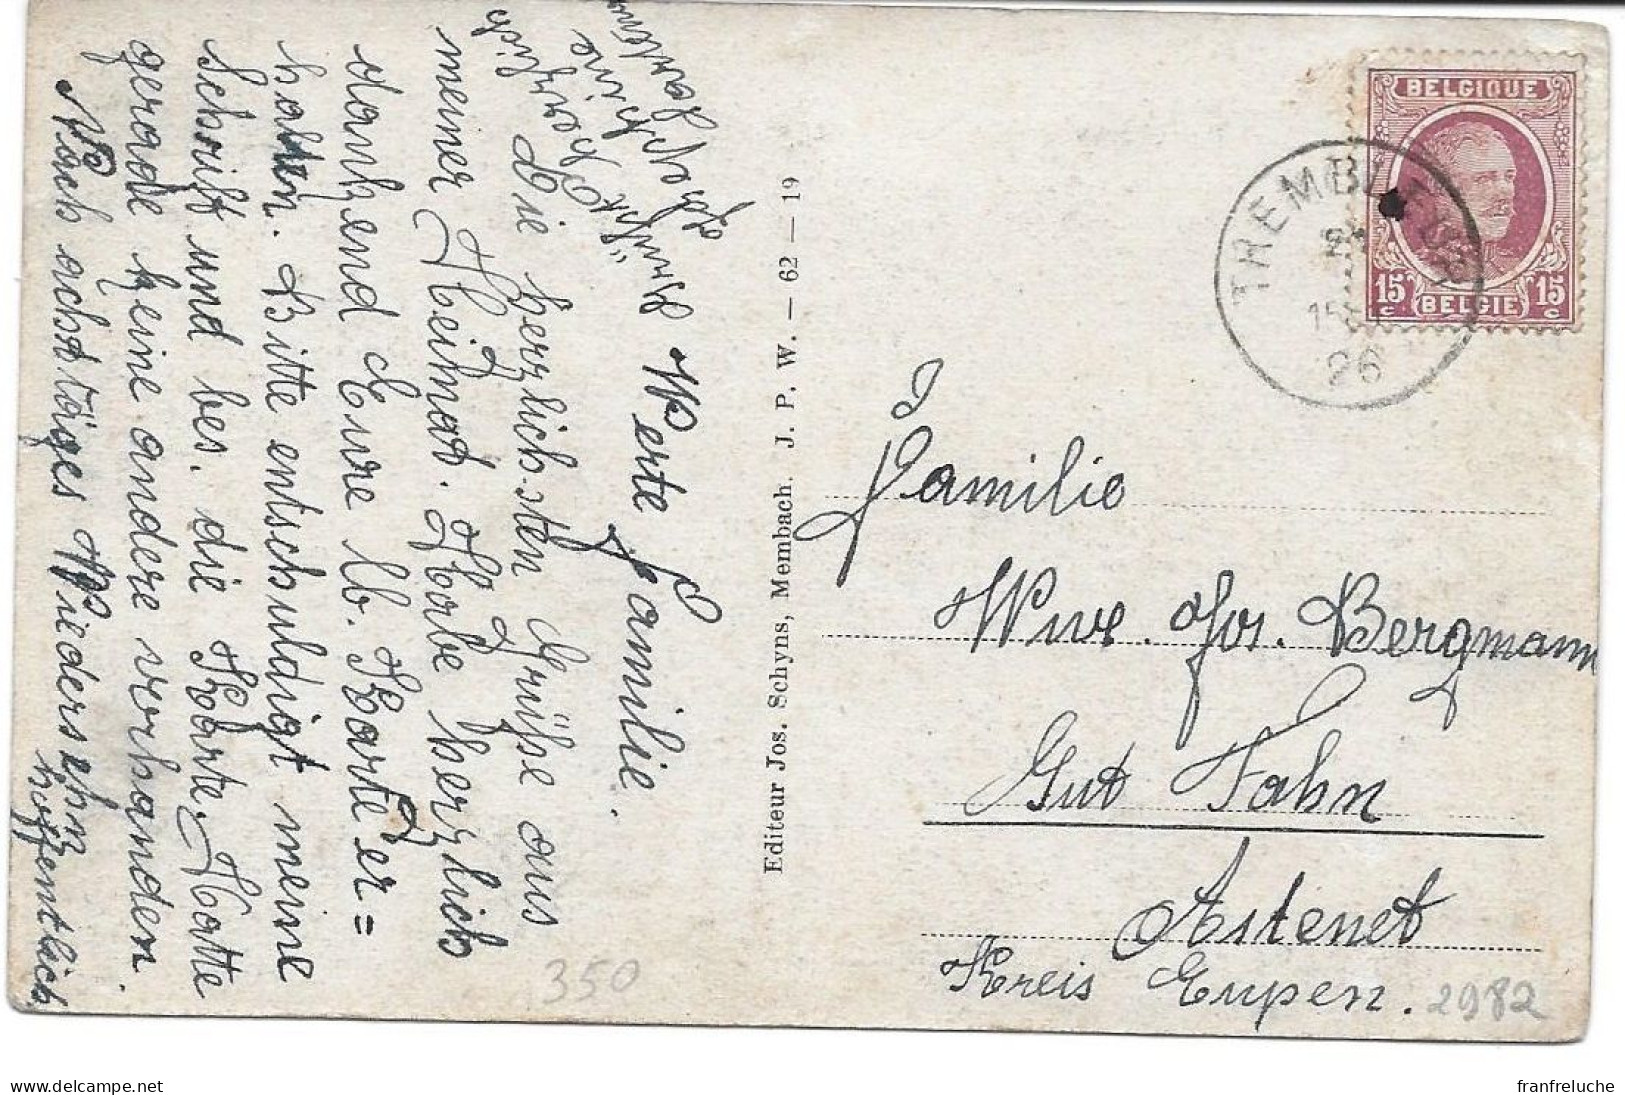 Werte Familie.
Die herzlichsten Grüße aus
meiner Heimat. Habe herzlich
dankend Eure lb. Karte er=
halten. Bitte entschuldigt meine
Schrift und bes. die Karte. Hatte
gerade keine andere vorhanden.
Nach achttäges Wiedersehn
hoffentlich.
herzlich
grüßt
Josephine
Editeur Jos. Schyns, Membach. J. P. W. — 62 — 19
BELGIQUE
15 c BELGIE 15 c
TREMBLEUR
15
26
Familie
Wwe. Jos. Bergmann
Gut Fahn
Astenet
Kreis Eupen.
350
2982
delcampe.net
franfreluche